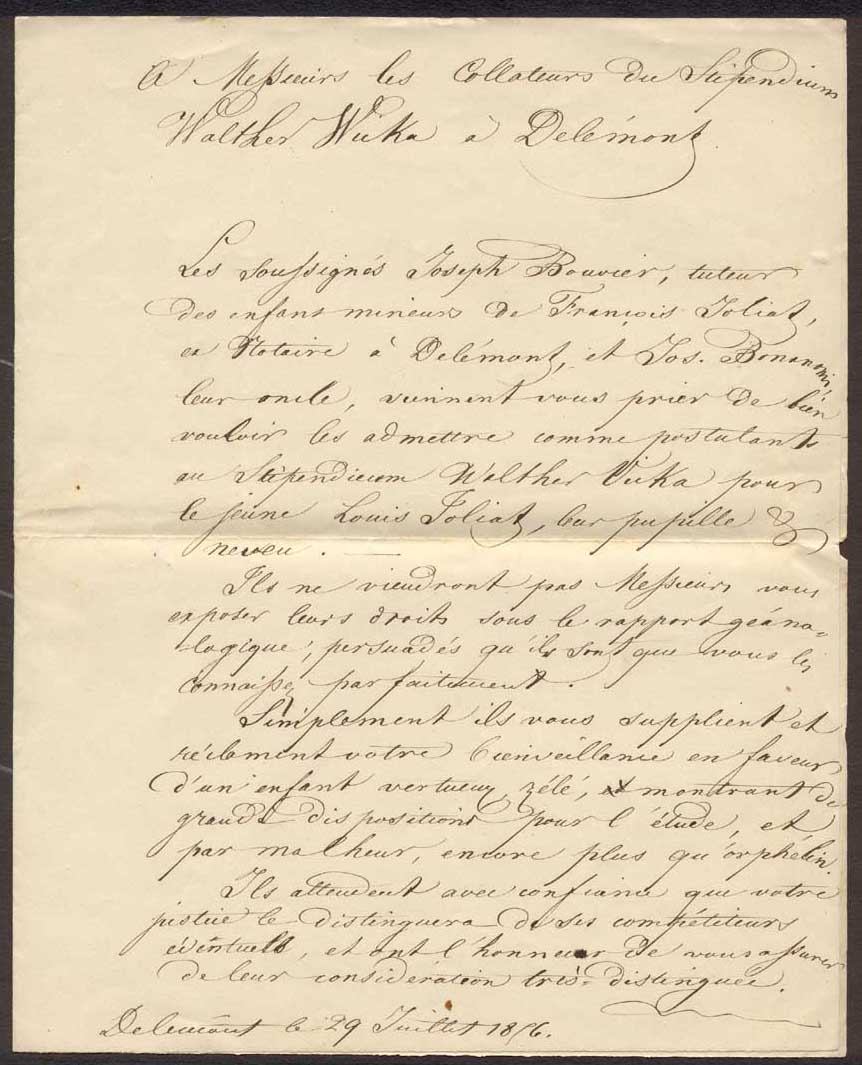 A Messieurs les Collateurs du Stipendium
Walther Wicka à Delémont.
Les soussignés Joseph Bouvier, tuteur
des enfans mineurs de François Joliat,
ex Notaire à Delémont, et Jos. Bonanomi,
leur oncle, viennent vous prier de bien
vouloir les admettre comme postulants
au Stipendium Walther Vicka pour
le jeune Louis Joliat, leur pupille &
neveu. —
Ils ne viendront pas Messieurs vous
exposer leurs droits sous le rapport généa-
-logique; persuadés qu'ils sont que vous les
connaissez parfaitement.
Simplement ils vous supplient et
réclament votre bienveillance en faveur
d'un enfant vertueux, zélé, montrant de
grandes dispositions pour l'étude, et
par malheur, encore plus qu'orphélin.
Ils attendent avec confiance que votre
justice le distinguera de ses compétiteurs
éventuels, et ont l'honneur de vous assurer
de leur considération très-distinguée.
Delémont le 29 Juillet 1856.